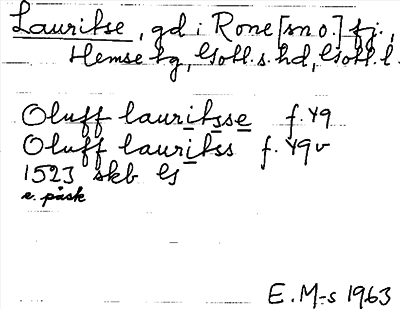 Lauritse, gd i Rone [sn o.] fj.,
Hemse tg, Gotl. s. hd, Gotl. l.
Oluff lauritsse f. 49
Oluff lauritss f. 49v
1523 skb G
e. påsk
E. M-s 1963